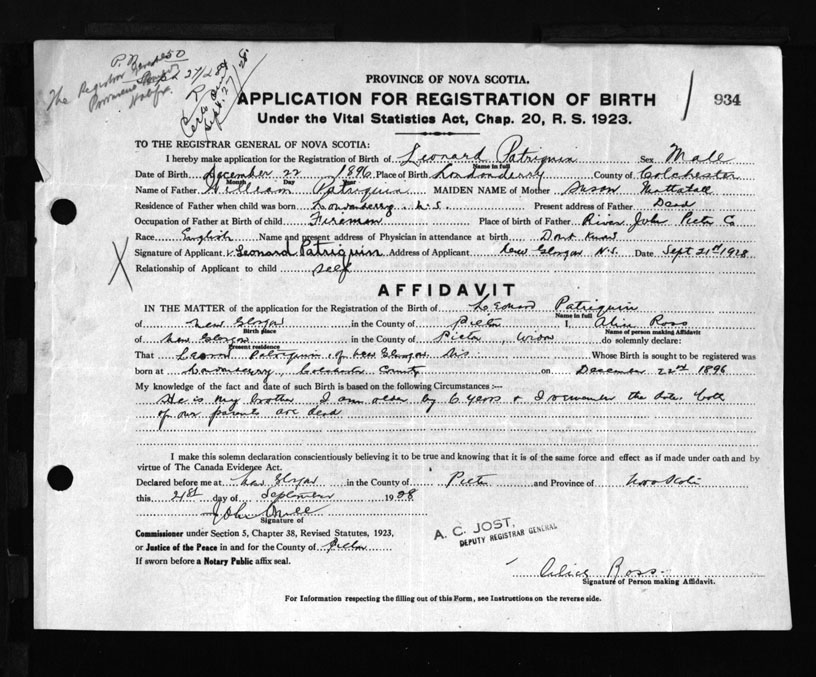 P.N.
The Registrar General
Halifax
27/28
Sept. 27/28
PROVINCE OF NOVA SCOTIA.
APPLICATION FOR REGISTRATION OF BIRTH
934
Under the Vital Statistics Act, Chap. 20, R. S. 1923.
TO THE REGISTRAR GENERAL OF NOVA SCOTIA:
I hereby make application for the Registration of Birth of Leonard Patriquin Sex Male
Name in full
Date of Birth December 22 1896 Place of Birth Londonderry County of Colchester
Month Day Year
Name of Father William Patriquin MAIDEN NAME of Mother Susan Mattatall
Residence of Father when child was born Londonderry N.S. Present address of Father Dead
Occupation of Father at Birth of child Fireman Place of birth of Father River John Pictou Co
Race English Name and present address of Physician in attendance at birth Dont Know
X Signature of Applicant Leonard Patriquin Address of Applicant New Glasgow N.S. Date Sept 21st 1928
Relationship of Applicant to child self
AFFIDAVIT
IN THE MATTER of the application for the Registration of the Birth of Leonard Patriquin
Name in full
of New Glasgow in the County of Pictou I, Alice Ross
Birth place Name of person making Affidavit
of New Glasgow in the County of Pictou, do solemnly declare:
Present residence
That Leonard Patriquin of New Glasgow Whose Birth is sought to be registered was
born at Londonderry, Colchester County on December 22nd 1896
My knowledge of the fact and date of such Birth is based on the following Circumstances :—
He is my brother I am older by 6 years & I remember the date, both
of our parents are dead
I make this solemn declaration conscientiously believing it to be true and knowing that it is of the same force and effect as if made under oath and by
virtue of The Canada Evidence Act.
Declared before me at New Glasgow in the County of Pictou and Province of Nova Scotia
this 21st day of September 1928
John
Signature of
Commissioner under Section 5, Chapter 38, Revised Statutes, 1923,
or Justice of the Peace in and for the County of Pictou
If sworn before a Notary Public affix seal.
A. C. JOST,
DEPUTY REGISTRAR GENERAL
Alice Ross
Signature of Person making Affidavit.
For Information respecting the filling out of this Form, see Instructions on the reverse side.